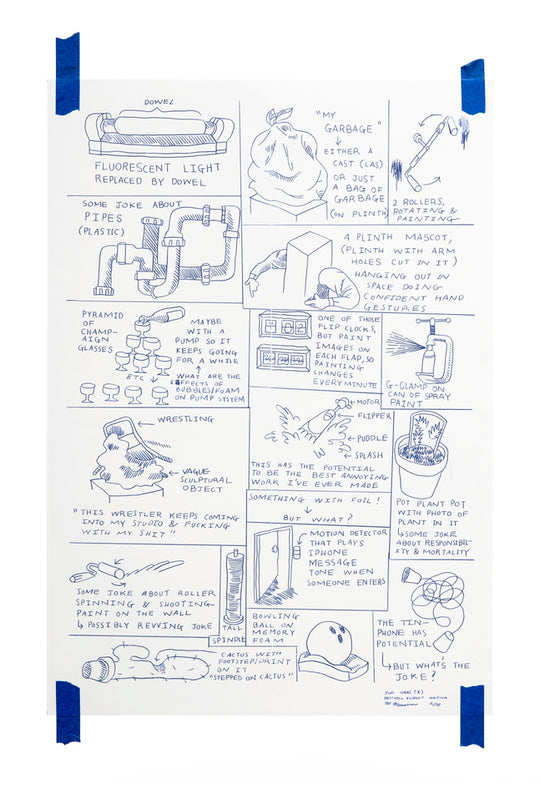 DOWEL
FLUORESCENT LIGHT
REPLACED BY DOWEL
"MY
GARBAGE"
EITHER A
CAST (LAS)
OR JUST
A BAG OF
GARBAGE
(ON PLINTH)
2 ROLLERS,
ROTATING &
PAINTING
SOME JOKE ABOUT
PIPES
(PLASTIC)
A PLINTH MASCOT,
(PLINTH WITH ARM
HOLES CUT IN IT)
HANGING OUT IN
SPACE DOING
CONFIDENT HAND
GESTURES
PYRAMID
OF
CHAMP-
AIGN
GLASSES
MAYBE
WITH A
PUMP SO IT
KEEPS GOING
FOR A WHILE
ETC
WHAT ARE THE
EFFECTS OF
BUBBLES/FOAM
ON PUMP SYSTEM
ONE OF THOSE
FLIP CLOCKS,
BUT PAINT
IMAGES ON
EACH FLAP, SO
PAINTING
CHANGES
EVERY MINUTE
G-CLAMP ON
CAN OF SPRAY
PAINT
WRESTLING
VAGUE
SCULPTURAL
OBJECT
"THIS WRESTLER KEEPS COMING
INTO MY STUDIO & FUCKING
WITH MY SHIT"
MOTOR
FLIPPER
PUDDLE
SPLASH
THIS HAS THE POTENTIAL
TO BE THE BEST ANNOYING
WORK I'VE EVER MADE
POT PLANT POT
WITH PHOTO OF
PLANT IN IT
SOME JOKE
ABOUT RESPONSIBIL-
ITY & MORTALITY
SOMETHING WITH FOIL!
BUT WHAT?
MOTION DETECTOR
THAT PLAYS
IPHONE
MESSAGE
TONE WHEN
SOMEONE ENTERS
SOME JOKE ABOUT ROLLER
SPINNING & SHOOTING
PAINT ON THE WALL
POSSIBLY REVVING JOKE
TALL
SPINDLE
BOWLING
BALL ON
MEMORY
FOAM
THE TIN-
PHONE HAS
POTENTIAL
BUT WHAT'S THE
JOKE?
CACTUS WITH
FOOTSTEP/PRINT
ON IT
"STEPPED ON CACTUS"